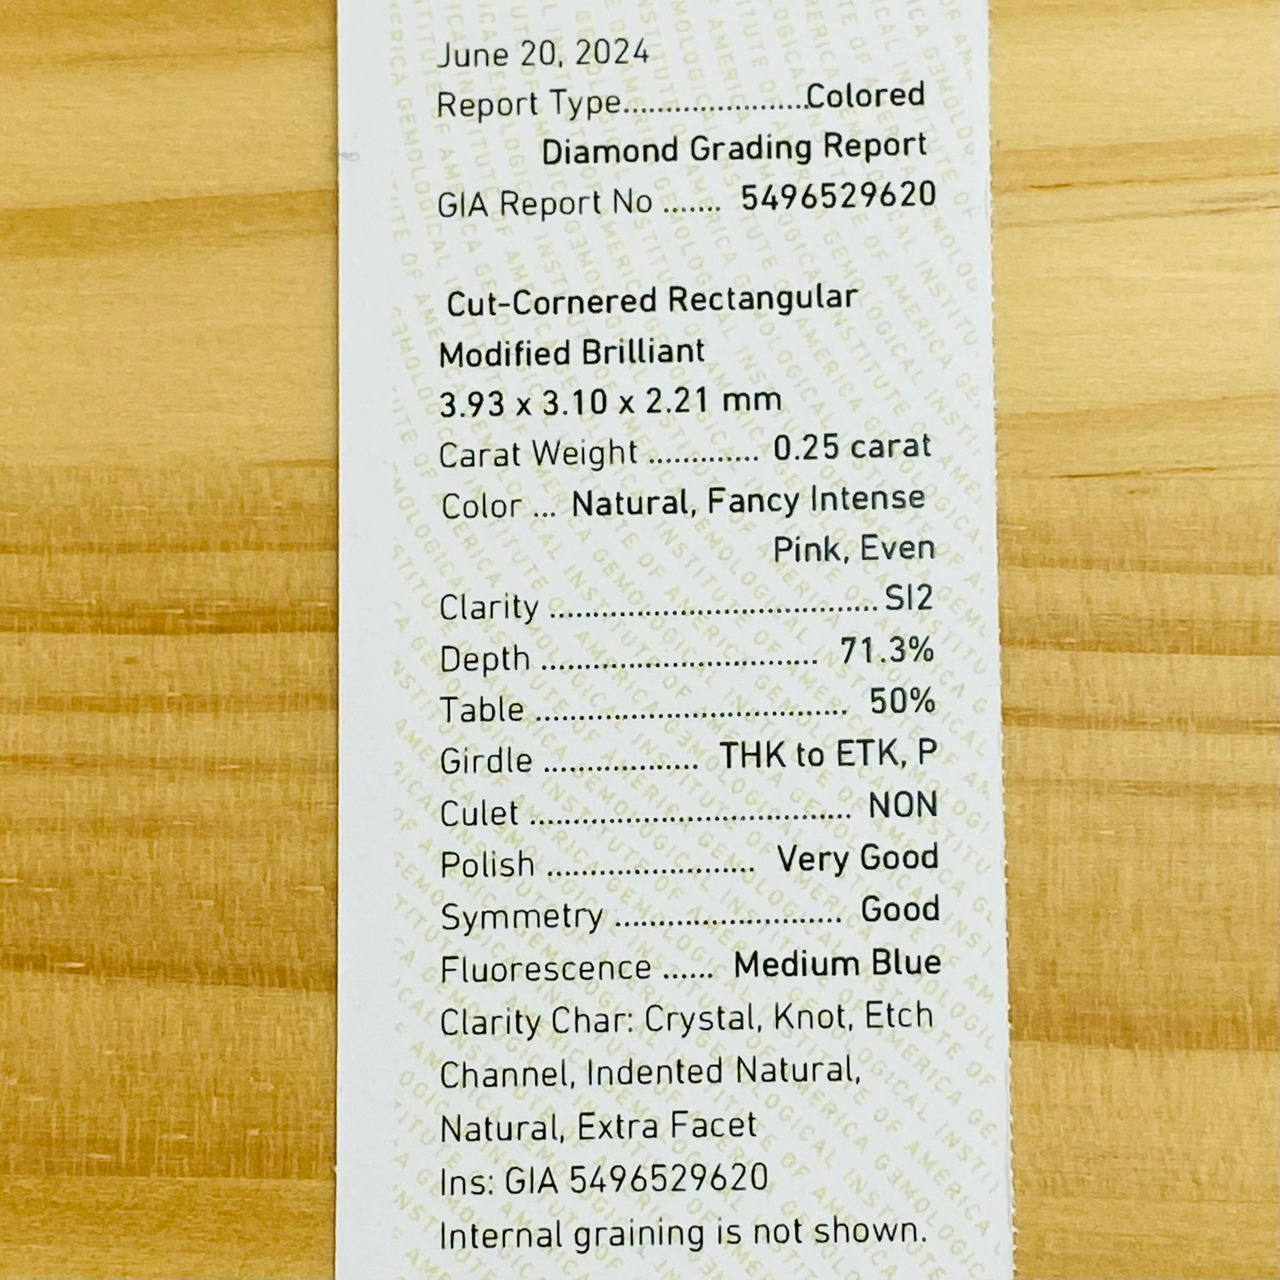 June 20, 2024
Report Type......................Colored
Diamond Grading Report
GIA Report No ....... 5496529620
Cut-Cornered Rectangular
Modified Brilliant
3.93 x 3.10 x 2.21 mm
Carat Weight ............. 0.25 carat
Color ... Natural, Fancy Intense
Pink, Even
Clarity ........................................ SI2
Depth .................................. 71.3%
Table ...................................... 50%
Girdle ................... THK to ETK, P
Culet ....................................... NON
Polish ......................... Very Good
Symmetry ............................ Good
Fluorescence ...... Medium Blue
Clarity Char: Crystal, Knot, Etch
Channel, Indented Natural,
Natural, Extra Facet
Ins: GIA 5496529620
Internal graining is not shown.